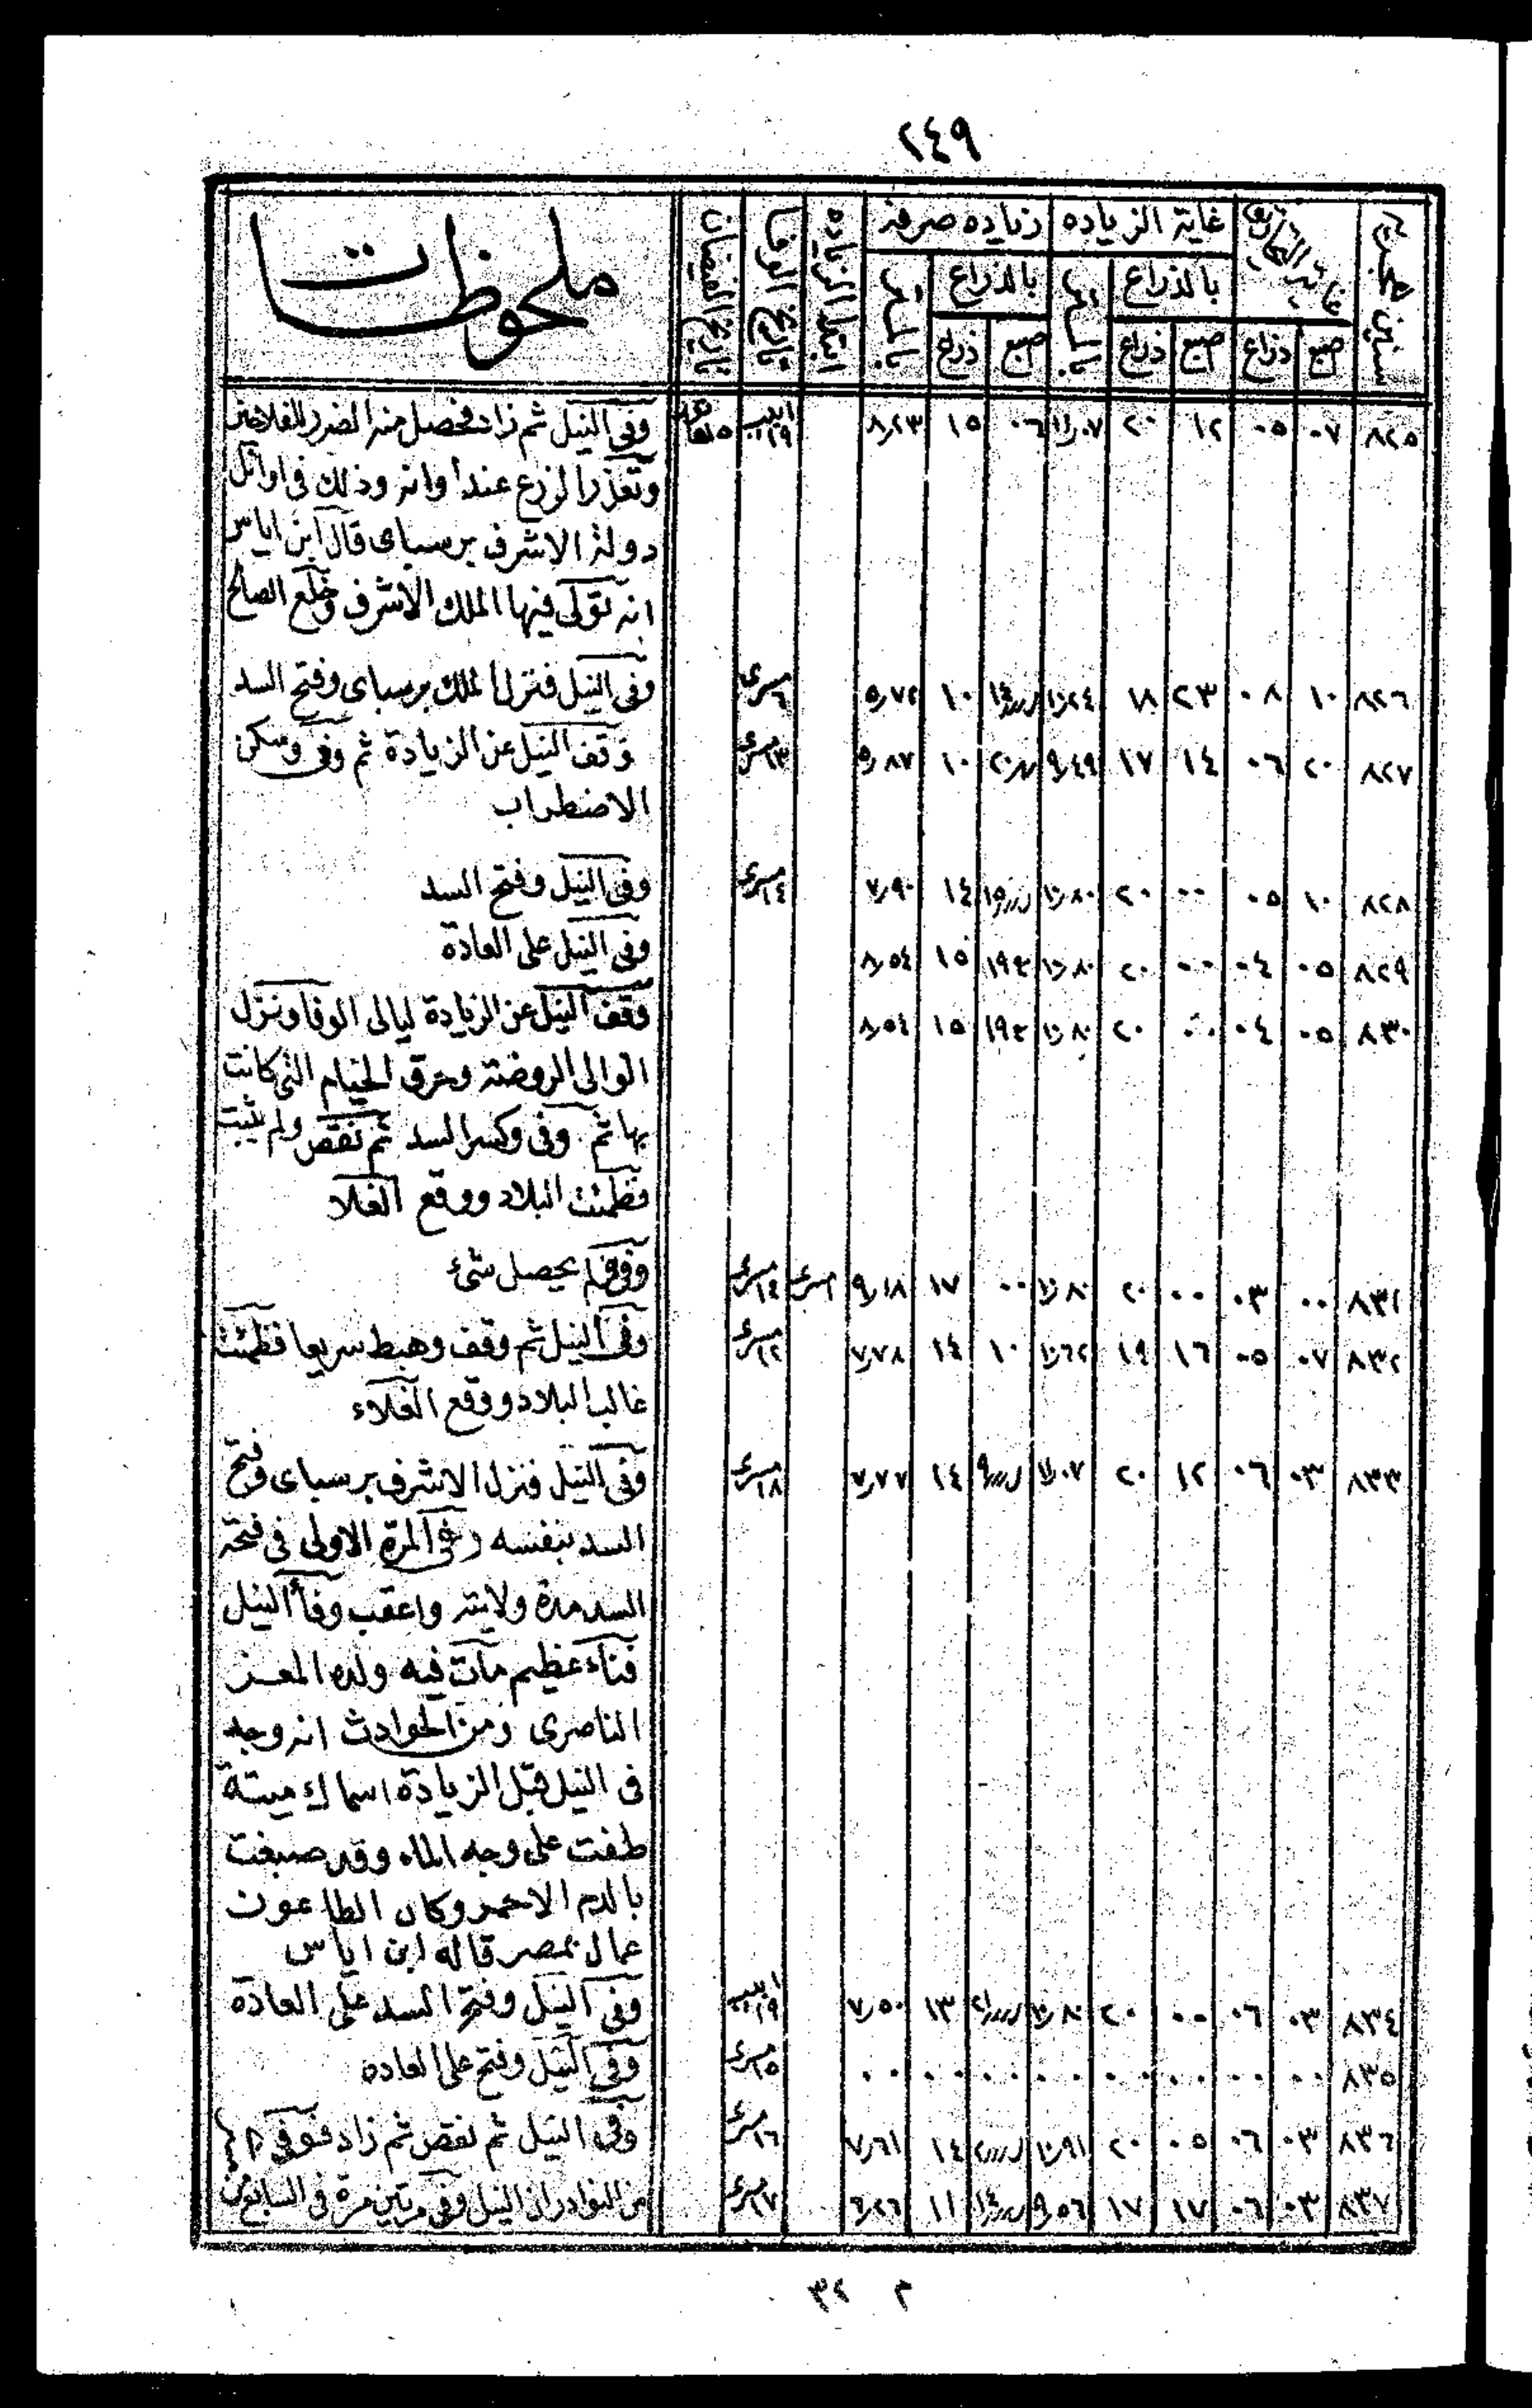 ٢٤٩
سنين هجريه
غاية الزياده
زياده صرفه
ابتدا الزياده
تاريخ الوفا
تاريخ الفيضان
ملحوظات
بالذراع
بالمتر
بالذراع
بالمتر
صبع ذراع صبع ذراع صبع ذراع
٨٢٥ ٠٧ ٠٥ ١٢ ٢٠ ١١٫٠٧ ٠٦ ١٥ ٨٫٢٣ ابيب ١٩ وفى النيل ثم زاد فحصل منه الضرر للفلاحين
وتعذر الزرع عند أوانه وذلك فى اوائل
دولة الاشرف برسباى قال ابن اياس
انه تولى فيها الملك الاشرف وخلع الصالح
٨٢٦ ١٠ ٠٨ ٢٣ ١٨ ١٠٫٢٤ ١٠ ٥٫٧٢ مسرى ٦ وفى النيل فنزل الملك برسباى وفتح السد
٨٢٧ ٢٠ ٠٦ ١٤ ١٧ ٩٫٤٩ ١٠ ٥٫٨٧ ١٣ مسرى وقف النيل عن الزيادة ثم وفى وسكن
الاضطراب
٨٢٨ ١٠ ٠٥ ٠٠ ٢٠ ١٠٫٨٠ ١٤ ٧٫٩٠ مسرى ١٤ وفى النيل وفتح السد
٨٢٩ ٠٥ ٠٤ ٠٠ ٢٠ ١٠٫٨٠ ١٩٣ ١٥ ٨٫٥٤ وفى النيل على العادة
٨٣٠ ٠٥ ٠٤ ٠٠ ٢٠ ١٠٫٨٠ ١٩٣ ١٥ ٨٫٥٤ وقف النيل عن الزيادة ليالى الوفا ونزل
الوالى الروضة وحرق الخيام التى كانت
بها ثم وفى وكسر السد ثم نقص ولم يثبت
فظمئت البلاد ووقع الغلا
٨٣١ ٠٠ ٠٣ ٠٠ ٢٠ ١٠٫٨٠ ٠٠ ١٧ ٩٫١٨ مسرى مسرى ١٤ وفى فلم يحصل شئ
٨٣٢ ٠٧ ٠٥ ١٦ ١٩ ١٠٫٦٢ ١٠ ١٤ ٧٫٧٨ مسرى ١٢ وفى النيل ثم وقف وهبط سريعا فظمئت
غالب البلاد ووقع الغلاء
٨٣٣ ٠٣ ٠٦ ١٢ ٢٠ ١١٫٠٧ ٩ ١٤ ٧٫٧٧ مسرى ١٨ وفى النيل فنزل الاشرف برسباى وفتح
السد بنفسه وفى المرة الاولى فى فتحه
السد مدة ولايته واعقب وفأ النيل
فناء عظيم مات فيه ولده المعـز
الناصرى ومن الحوادث انه وجد
فى النيل قبل الزيادة اسماك ميتة
طفت على وجه الماء وقد صبغت
بالدم الاحمر وكان الطاعون
عمال بمصر قاله ابن اياس
٨٣٤ ٠٣ ٠٦ ٠٠ ٢٠ ١٠٫٨٠ ١٣ ٧٫٥٠ ابيب ١٩ وفى النيل وفتح السد على العادة
٨٣٥ ٠٠ ٠٠ ٠٠ ٠٠ ٠٠ ٠٠ ٠٠ ٠٠ مسرى ١٥ وفى النيل وفتح على العاده
٨٣٦ ٠٣ ٠٦ ٠٥ ٢٠ ١٠٫٩١ ١٤ ٧٫٦١ مسرى ١٦ وفى النيل ثم نقص ثم زاد فوفى
٨٣٧ ٠٣ ٠٦ ١٧ ١٧ ٩٫٥٦ ١١ ٦٫٢٦ مسرى ١٧ من النوادر ان النيل وفى مرتين مرة فى السابع من
م ٣٢